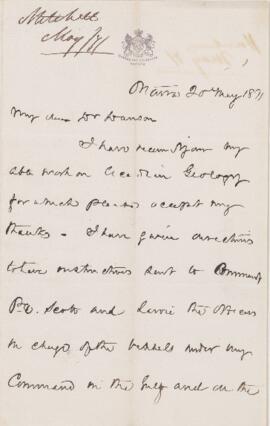 Mitchell
May /71
Ottawa 20 May 1871
My dear Dr Dawson
I have recd from my
able work on Acadian Geology
for which please accept my
thanks - I have given directions
to have instructions sent to Command
P.E. Scott and Lavoie the Officers
in charge of the vessels under my
Command in the Gulf and on the